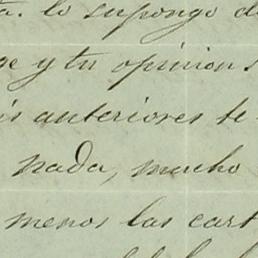 ta. lo supongo de
ge y tu opinion s
is anteriores te
nada, mucho
menos las cart